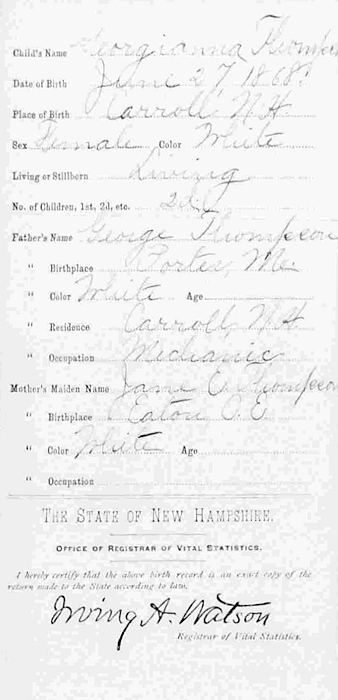 Child's Name Georgianna Thompson
Date of Birth June 27 1868
Place of Birth Carroll, N.H.
Sex Female Color White
Living or Stillborn Living
No. of Children, 1st, 2d, etc. 2d
Father's Name George Thompson
" Birthplace Porter, Me.
" Color White Age
" Residence Carroll N.H.
" Occupation Mechanic
Mother's Maiden Name Jane Thompson
" Birthplace Eaton
" Color White Age
" Occupation
THE STATE OF NEW HAMPSHIRE.
OFFICE OF REGISTRAR OF VITAL STATISTICS.
I hereby certify that the above birth record is an exact copy of the
return made to the State according to law.
Irving A. Watson
Registrar of Vital Statistics.